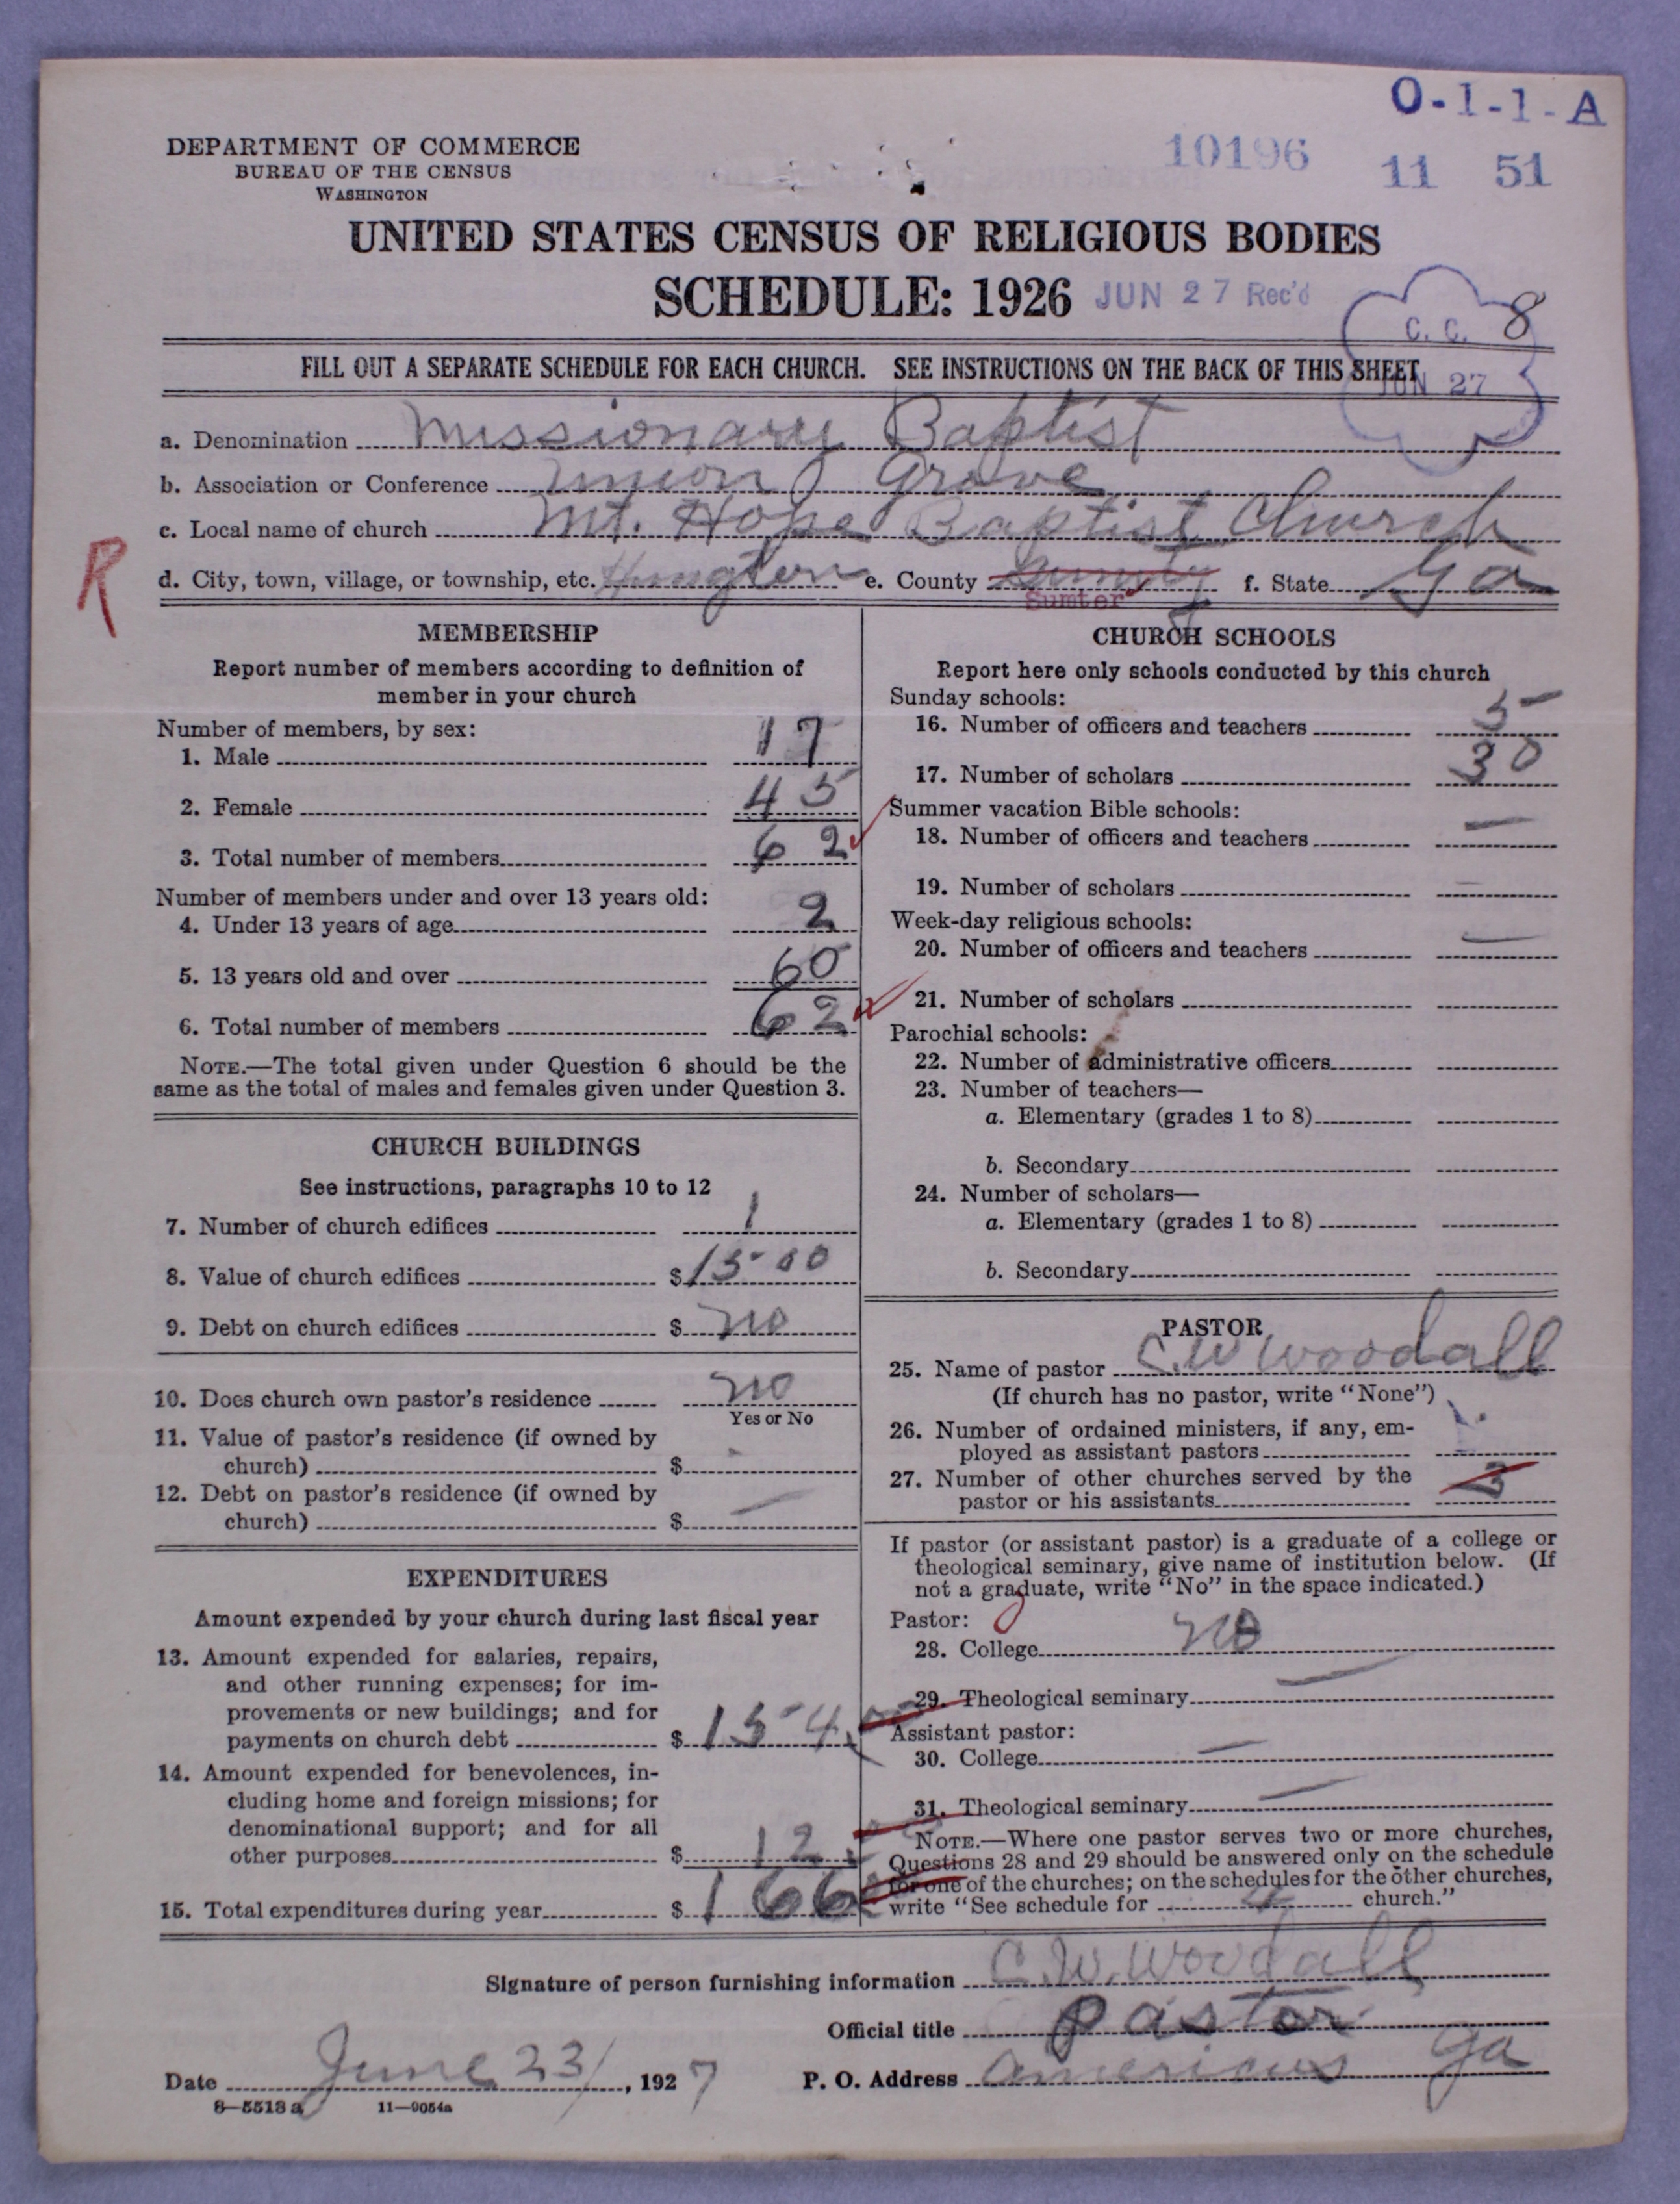 O-1-1-A
10196 11 51
DEPARTMENT OF COMMERCE
BUREAU OF THE CENSUS
WASHINGTON
UNITED STATES CENSUS OF RELIGIOUS BODIES
SCHEDULE: 1926 JUN 27 Rec'd
C. C. 8
JUN 27
FILL OUT A SEPARATE SCHEDULE FOR EACH CHURCH. SEE INSTRUCTIONS ON THE BACK OF THIS SHEET
a. Denomination Missionary Baptist
b. Association or Conference Union Grove
c. Local name of church Mt. Hope Baptist Church
R
d. City, town, village, or township, etc. e. County Sumter f. State Ga
MEMBERSHIP
Report number of members according to definition of
member in your church
Number of members, by sex:
1. Male 17
2. Female 45
3. Total number of members 62
Number of members under and over 13 years old:
4. Under 13 years of age 2
5. 13 years old and over 60
6. Total number of members 62
NOTE.—The total given under Question 6 should be the
same as the total of males and females given under Question 3.
CHURCH BUILDINGS
See instructions, paragraphs 10 to 12
7. Number of church edifices 1
8. Value of church edifices $ 1500
9. Debt on church edifices $ no
10. Does church own pastor's residence no
Yes or No
11. Value of pastor's residence (if owned by
church) $ -
12. Debt on pastor's residence (if owned by
church) $ —
EXPENDITURES
Amount expended by your church during last fiscal year
13. Amount expended for salaries, repairs,
and other running expenses; for im-
provements or new buildings; and for
payments on church debt $ 154
14. Amount expended for benevolences, in-
cluding home and foreign missions; for
denominational support; and for all
other purposes $ 12
15. Total expenditures during year $ 166
CHURCH SCHOOLS
Report here only schools conducted by this church
Sunday schools:
16. Number of officers and teachers 5
17. Number of scholars 30
Summer vacation Bible schools:
18. Number of officers and teachers —
19. Number of scholars —
Week-day religious schools:
20. Number of officers and teachers —
21. Number of scholars
Parochial schools:
22. Number of administrative officers
23. Number of teachers—
a. Elementary (grades 1 to 8)
b. Secondary
24. Number of scholars—
a. Elementary (grades 1 to 8)
b. Secondary
PASTOR
25. Name of pastor C. W Woodall
(If church has no pastor, write "None")
26. Number of ordained ministers, if any, em-
ployed as assistant pastors
27. Number of other churches served by the
pastor or his assistants 3
If pastor (or assistant pastor) is a graduate of a college or
theological seminary, give name of institution below. (If
not a graduate, write "No" in the space indicated.)
Pastor:
28. College no
29. Theological seminary —
Assistant pastor:
30. College —
31. Theological seminary —
NOTE.—Where one pastor serves two or more churches,
Questions 28 and 29 should be answered only on the schedule
for one of the churches; on the schedules for the other churches,
write "See schedule for 4 church."
Signature of person furnishing information C. W. Woodall
Official title pastor
Date June 23, 1927 P. O. Address Americus Ga
8—5513 a 11—9054a